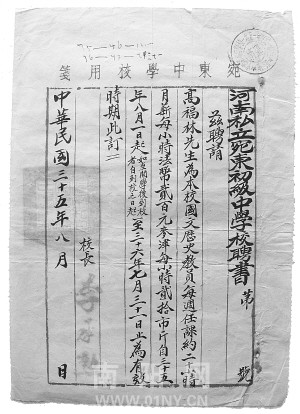 宛東中學校用箋
河南私立宛東初級中學校聘書 第 號
茲聘請
高福林先生為本校國文歷史教員每週任課約二 時
月薪每小時法幣貳百元麥津每小時貳拾市斤自三十五
年八月一日起 如在開學後到校者自到校之日起 至三十六年七月三十一日止為有效
時期此訂
校長 李
中華民國三十五年八月 日
WWW.01NY.CN